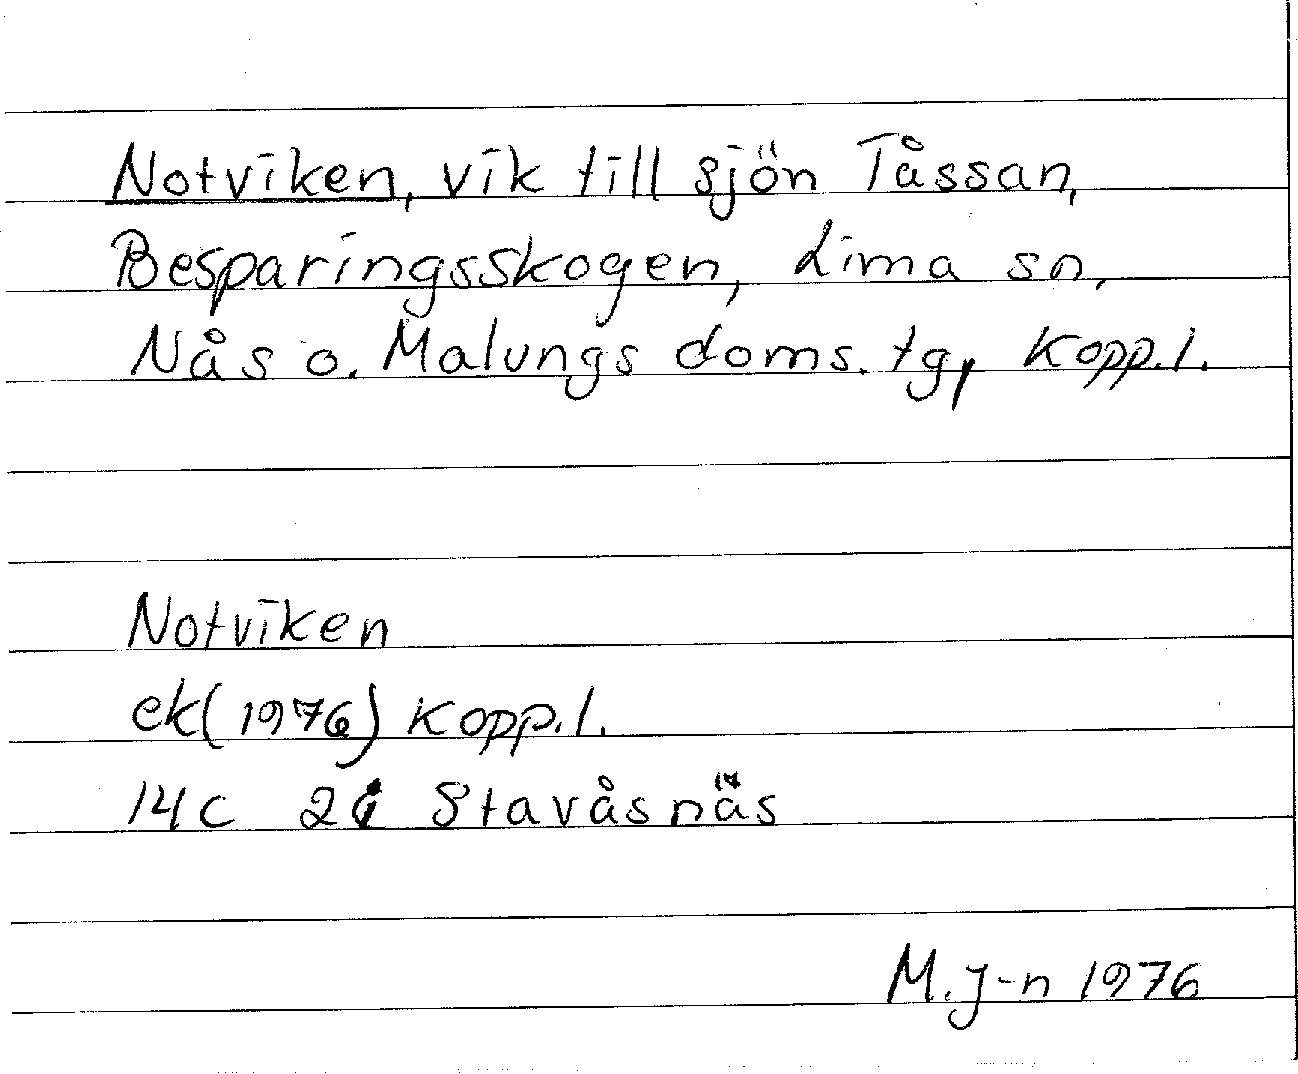 Notviken, vik till sjön Tåssan,
Besparingsskogen, Lima sn,
Nås o. Malungs doms. tg, Kopp.l.
Notviken
ek(1976) Kopp.l.
14C 2i Stavåsnäs
M.J-n 1976